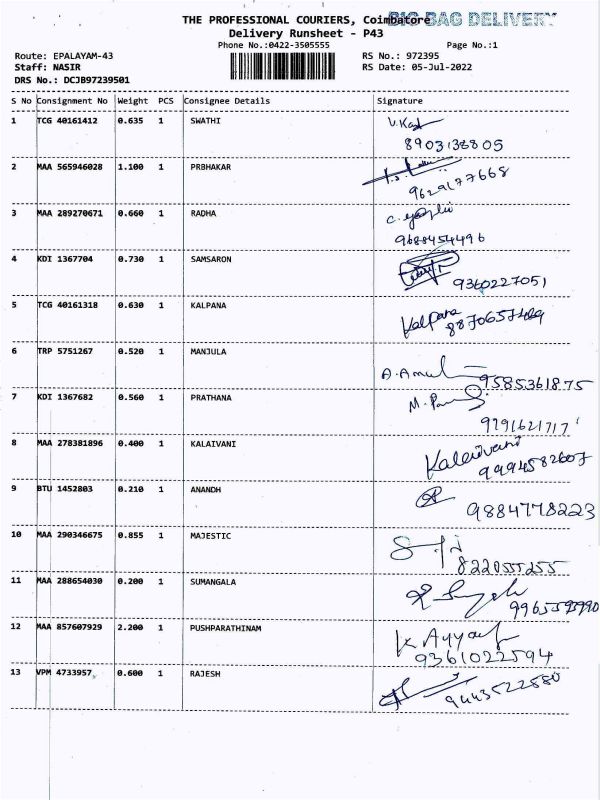 THE PROFESSIONAL COURIERS, Coimbatore BIG BAG DELIVERY
Delivery Runsheet - P43
Phone No.:0422-3505555 Page No.:1
Route: EPALAYAM-43 RS No.: 972395
Staff: NASIR RS Date: 05-Jul-2022
DRS No.: DCJB97239501
S No Consignment No Weight PCS Consignee Details Signature
1 TCG 40161412 0.635 1 SWATHI
8903138805
2 MAA 565946028 1.100 1 PRBHAKAR
9629177668
3 MAA 289270671 0.660 1 RADHA
9688454496
4 KDI 1367704 0.730 1 SAMSARON
9360227051
5 TCG 40161318 0.630 1 KALPANA Kalpana
6 TRP 5751267 0.520 1 MANJULA
9585361875
7 KDI 1367682 0.560 1 PRATHANA
9791621717
8 MAA 278381896 0.400 1 KALAIVANI Kalaivani
9994582607
9 BTU 1452803 0.210 1 ANANDH
9884778223
10 MAA 290346675 0.855 1 MAJESTIC
11 MAA 288654030 0.200 1 SUMANGALA
12 MAA 857607929 2.200 1 PUSHPARATHINAM
9361022594
13 VPM 4733957 0.600 1 RAJESH
9443522880